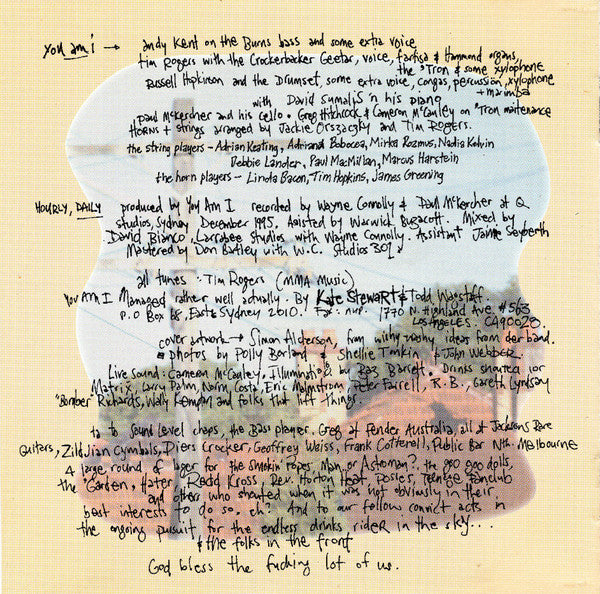 you am i → andy kent on the Burns bass and some extra voice
tim Rogers with the Crockerbacker Geetar, voice, farfisa & Hammond organs,
the 'Tron & some xylophone
Russell Hopkinson and the Drumset, some extra voice, congas, percussion, xylophone
+ marimba
with David Sumalis n his piano
Paul McKercher and his Cello. Greg Hitchcock & Cameron McCauley on 'Tron maitenance
Horns + strings arranged by Jackie Orszaczky and Tim Rogers.
the string players - Adrian Keating, Adriand Bobocea, Mirka Rozmus, Nadia Kolvin
Debbie Lander, Paul MacMillan, Marcus Harstein
the horn players - Linda Bacon, Tim Hopkins, James Greening
HOURLY, DAILY produced by You Am I recorded by Wayne Connolly & Paul McKercher at Q
studios, Sydney December 1995. Assisted by Warwick Bugacott. Mixed by
David Bianco, Larrabee Studios with Wayne Connolly. Assistant Jamie Seyberth
Mastered by Don Bartley with W.C. Studios 301
all tunes - Tim Rogers (MMA MUSIC)
You Am I Managed rather well actually. By Kate STEWART & Todd Wagstaff.
P.O Box 68, East Sydney 2010. 1770 N. Highland Ave. #563
LOS ANGELES. CA90028.
cover artwork → Simon Alderson, from wishy washy ideas from der band.
photos by Polly Borland Shellie Tomkin & John WEBBER.
Live sound: Cameron McCauley, Illumination by Baz Barrett. Drinks shouted for
Matrix, Larry Dahm, Norm, Costa, Eric Malmstrom, Peter Farrell, R.B., Gareth Lyndsay
"Bomber" Richards, Wally Kempton and folks that lift things.
ta to Sound Level chaps, the Bass player, Greg at Fender Australia, all at Jacksons Rare
Guitars, Zildjian Cymbals, Piers Crocker, Geoffrey Weiss, Frank Cotterell, Public Bar Nth. Melbourne
A large round of lager for the smokin' popes, Man or Astroman?, the goo goo dolls,
the 'Garden, Hater, Redd Kross, Rev. Horton Heat, Posies, Teenage Fanclub
and others who shouted when it was not obviously in their
best interests to do so, eh? And to our fellow convict acts in
the ongoing pursuit for the endless drinks rider in the sky....
& the folks in the front
God bless the fucking lot of us.